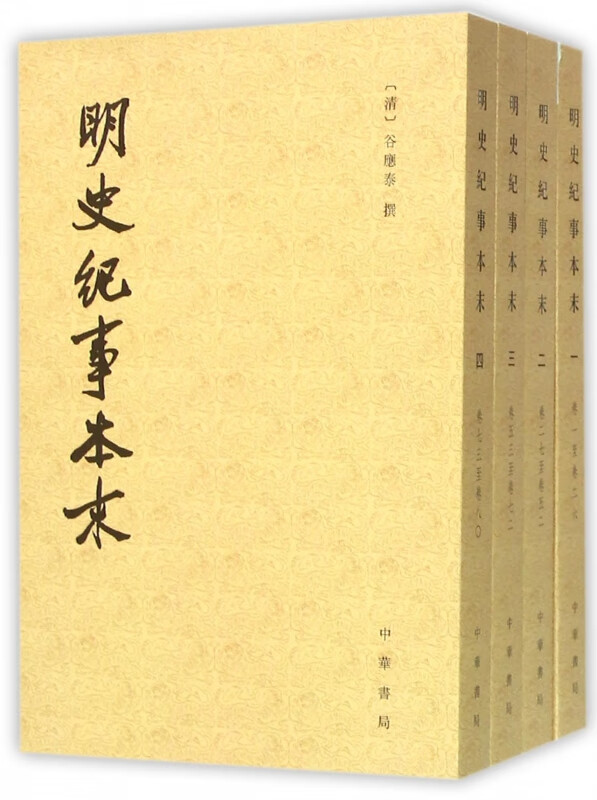 明史紀事本末
〔清〕谷應泰 撰
中華書局
明史紀事本末 四 卷七三至卷八〇 中華書局
明史紀事本末 三 卷五三至卷七二 中華書局
明史紀事本末 二 卷二七至卷五二 中華書局
明史紀事本末 一 卷一至卷二六 中華書局